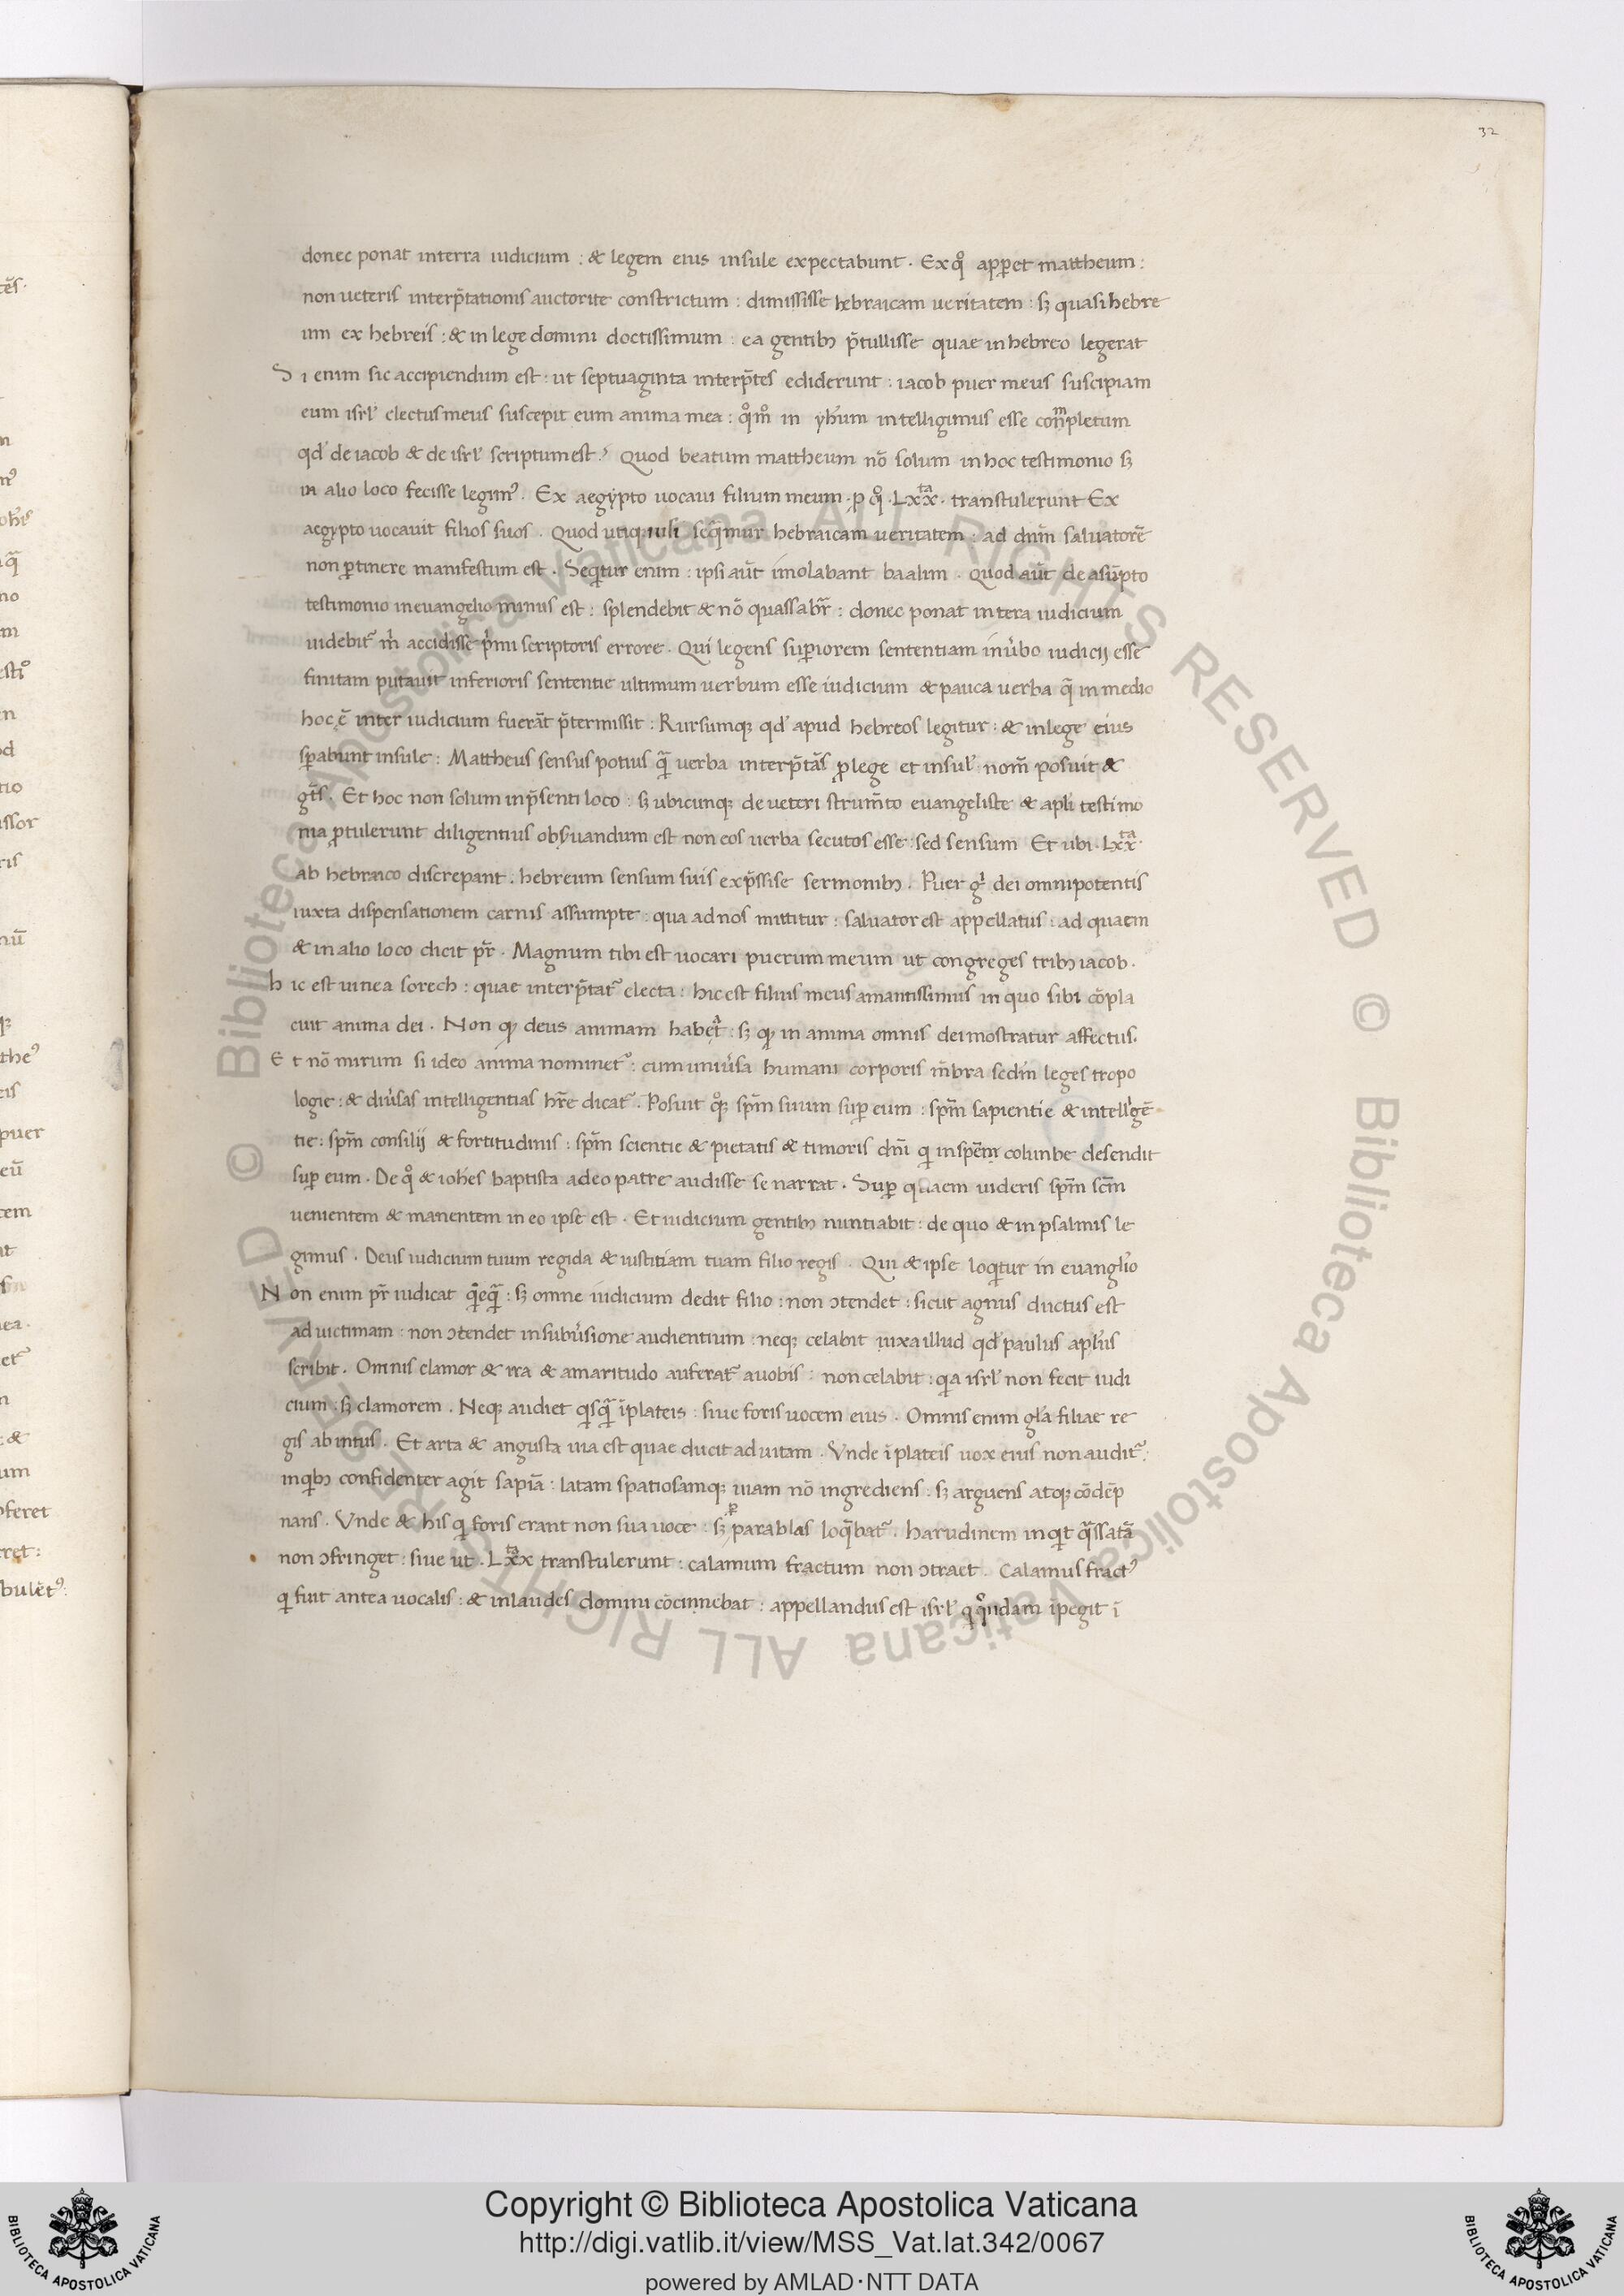 32
donec ponat interra iudicium : & legem eius insule expectabunt . Ex qͦ apꝑet mattheum :
non ueteris interp̄tationis auctorite constrictum : dimississe hebraicam ueritatem : sꝫ quasi hebre
um ex hebreis : & in lege domini doctissimum : ea gentibꝫ p̄tullisse quae in hebreo legerat
Si enim sic accipiendum est : ut septuaginta interp̄tes ediderunt : iacob puer meus suscipiam
eum isrł electus meus suscepit eum anima mea : qͦmͦ in yhūm intelligimus esse completum
qđ de iacob & de isrł scriptum est ? Quod beatum mattheum nō solum in hoc testimonio sꝫ
in alio loco fecisse legimꝰ . Ex aegypto uocaui filium meum . ꝑ qͦ . Lxxᵗᵃ . transtulerunt Ex
aegypto uocauit filios suos . Quod utiqꝫ nisi seq̄mur hebraicam ueritatem : ad dn̄m saluatorē
non ꝑtinere manifestum est . Seqͥtur enim : ipsi aūt imolabant baalim . Quod aūt de asūpto
testimonio in euangelio minus est : splendebit & nō quassabr̄ : donec ponat in tera iudicium
uidebitᷣ mͥ accidisse pͥmi scriptoris errore . Qui legens suꝑiorem sententiam in ūbo iudicij esse
finitam putauit inferioris sententie ultimum uerbum esse iudicium & pauca uerba q̄ in medio
hoc ē inter iudicium fuerāt p̄termissit : Rursumqꝫ qđ apud hebreos legitur : & in lege eius
sꝑabunt insule : Mattheus sensus potius qᷓ uerba interp̄tās ꝓ lege et insuł nom̄ posuit &
gt̄s . Et hoc non solum in p̄senti loco : sꝫ ubicunqꝫ de ueteri strum̄to euangeliste & apłi testimo
nia ꝓtulerunt diligentius obẜuandum est non eos uerba secutos esse : sed sensum Et ubi . Lxxᵗᵃ .
ab hebraico discrepant . hebreum sensum suis exp̄ssise sermonibꝫ . Puer gͥ dei omnipotentis
iuxta dispensationem carnis assumpte : qua ad nos mittitur : saluator est appellatus : ad quaem
& in alio loco dicit pr̄ . Magnum tibi est uocari puerum meum ut congreges tribꝫ iacob .
hic est uinea sorech : quae interp̄tatᷣ electa : hic est filius meus amantissimus in quo sibi cōpla
cuit anima dei . Non qꝫ deus animam habet : sꝫ qꝫ in anima omnis dei mostratur affectus .
Et nō mirum si ideo anima nominetᷣ : cum uniūsa humani corporis mēbra sedm̄ leges tropo
logie : & diūsas intelligentias hr̄e dicatᷣ . Posuit qͦqꝫ spm̄ suum suꝑ eum : spm̄ sapientie & intelligē
tie : spm̄ consilij & fortitudinis : spm̄ scientie & pietatis & timoris dn̄i qͥ in spēm colunbe desendit
suꝑ eum . De qͦ & ioħes baptista a deo patre audisse se narrat . Suꝑ quaem uideris spm̄ scm̄
uenientem & manentem in eo ipse est . Et iudicium gentibꝫ nuntiabit : de quo & in psalmis le
gimus . Deus iudicium tuum regi da & iustitiam tuam filio regis . Qui & ipse loqͥtur in euangłio
Non enim pr̄ iudicat qͥeqᷓ : sꝫ omne iudicium dedit filio : non ↄtendet : sicut agnus ductus est
ad uictimam : non ↄtendet in subūsione audientium : neqꝫ celabit iuxa illud qđ paulus apłus
scribit . Omnis clamor & ira & amaritudo auferatᷣ a uobis : non celabit : qͥa isrł non fecit iudi
cium : sꝫ clamorem . Neqꝫ audiet qͥsqᷓ ī plateis : siue foris uocem eius . Omnis enim głia filiae re
gis ab intus . Et arta & angusta uia est quae ducit ad uitam . Vnde ī plateis uox eius non auditᷣ :
in qͥbꝫ confidenter agit sapiā : latam spatiosamqꝫ uiam nō ingrediens : sꝫ arguens atqꝫ cōdēp
nans . Vnde & his qͥ foris erant non sua uoce : sꝫ ꝑ parablas loq̄batᷣ . harudinem inqͥt qᷓssatā
non ↄfringet : siue ut . Lxxᵗᵃ transtulerunt : calamum fractum non ↄtraet . Calamus fractꝰ
qͥ fuit antea uocalis : & in laudes domini cōcinnebat : appellandus est isrł qͥ qͦndam īpegit ī